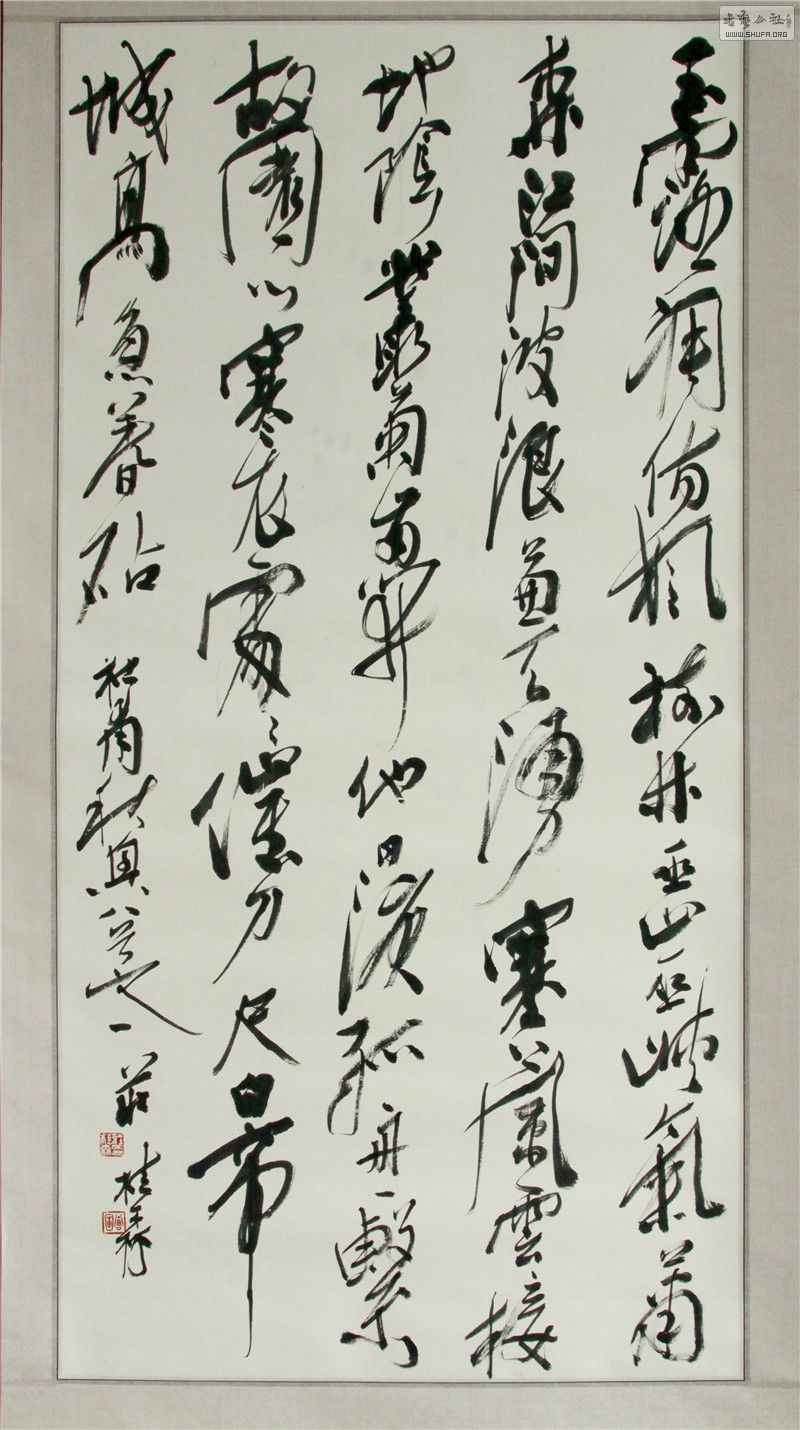 書藝公社
WWW.SHUFA.ORG
玉露凋傷楓樹林巫山巫峽氣蕭
森江間波浪兼天湧塞上風雲接
地陰叢菊兩開他日淚孤舟一繫
故園心寒衣處處催刀尺白帝
城高急暮砧 杜甫秋興八首之一 莊桂